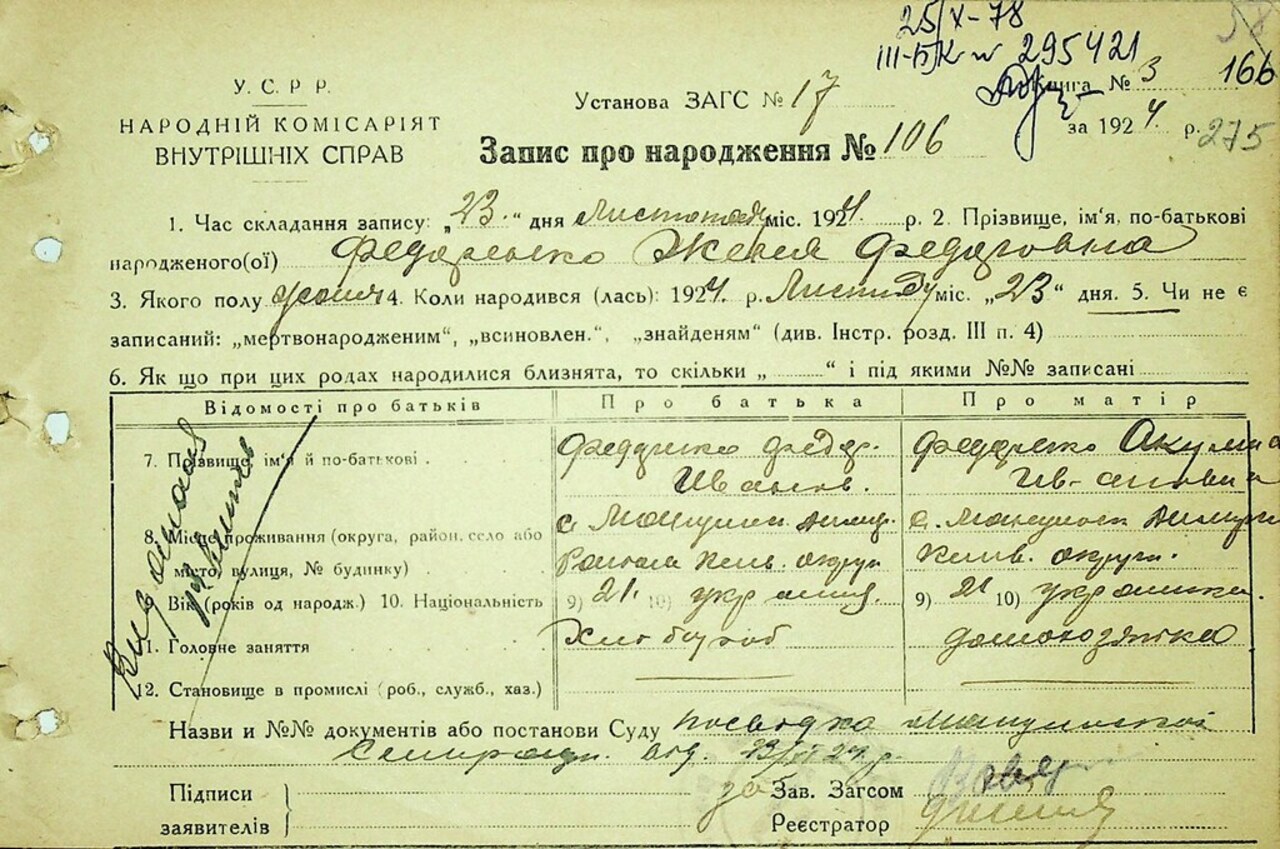 25/X-78
III-БК № 295421
166
У. С. Р. Р.
НАРОДНІЙ КОМІСАРІЯТ
ВНУТРІШНІХ СПРАВ
Установа ЗАГС № 17
Книга № 3
за 1924 р. 275
Запис про народження № 106
1. Час складання запису: „23“ дня Листопад міс. 1924 р. 2. Прізвище, ім'я, по-батькові
народженого(ої) Федоренко Женя Федоровна
3. Якого полу жоноч 4. Коли народився (лась): 1924 р. Листопаду міс. „23“ дня. 5. Чи не є
записаний: „мертвонародженим“, „всиновлен.“, „знайденям“ (див. Інстр. розд. III п. 4)
6. Як що при цих родах народилися близнята, то скільки „ “ і під якими №№ записані
Відомості про батьків Про батька Про матір
7. Прізвище, ім'я й по-батькові Федоренко Федор. Федоренко Акулина
Иванов. Ив-ановна
8. Місце проживання (округа, район, село або с. с.
місто, вулиця, № будинку) Района Киів. округи Киів. округи.
9. Вік (років од народж.) 10. Національність 9) 21. 10) україниц. 9) 21 10) українка.
11. Головне заняття Хлібороб домохозяйка
12. Становище в промислі (роб., служб., хаз.)
Назви и №№ документів або постанови Суду посвідка
Сельради від. 23/XI 24 р.
Підписи
заявителів
за Зав. Загсом
Реєстратор